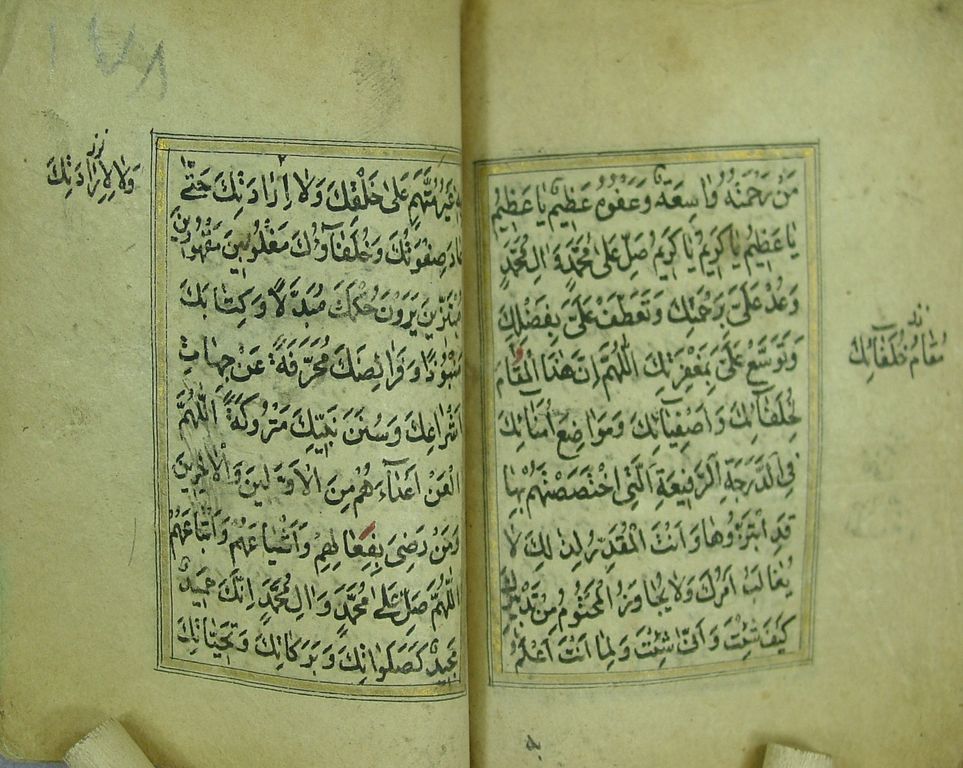 مَنْ رَحْمَتُهُ وٰاسِعَةٌ وَعَفْوُهُ عَظِيمٌ يٰا عَظِيمُ
يٰا عَظِيمُ يٰا كَرِيمُ يٰا كَرِيمُ صَلِّ عَلىٰ مُحَمَّدٍ وَ الِ مُحَمَّدٍ
وَعُدْ عَلَىَّ بِرَحْمَتِكَ وَتَعَطَّفْ عَلَىَّ بِفَضْلِكَ
وَتَوَسَّعْ عَلَىَّ بِمَغْفِرَتِكَ اَللّٰهُمَّ اِنَّ هٰذَا الْمَقٰامَ
لِخُلَفٰآئِكَ وَاَصْفِيٰآئِكَ وَمَوٰاضِعَ اُمَنٰآئِكَ
فِى الدَّرَجَةِ الرَّفِيعَةِ اَلَّتِى اخْتَصَصْتَهُمْ بِهٰا
قَدِ ابْتَزُّوهٰا وَاَنْتَ الْمُقَدِّرُ لِذٰلِكَ لاٰ
يُغٰالَبُ اَمْرُكَ وَلاٰ يُجٰاوَزُ الْمَحْتُومُ مِنْ تَدْبِيرِكَ
كَيْفَ شِئْتَ وَاَنّٰى شِئْتَ وَلِمٰا اَنْتَ اَعْلَمُ
مَقٰامُ خُلَفٰآئِكَ
بِهِ غَيْرُ مُتَّهَمٍ عَلىٰ خَلْقِكَ وَلاٰ اِرٰادَتِكَ حَتّٰى
عٰادَ صِفْوَتُكَ وَخُلَفٰآؤُكَ مَغْلُوبِينَ مَقْهُورِينَ
مُبْتَزِّينَ يَرَوْنَ حُكْمَكَ مُبَدَّلاً وَكِتٰابَكَ
مَنْبُوذًا وَفَرٰائِضَكَ مُحَرَّفَةً عَنْ جِهٰاتِ
اَشْرٰاعِكَ وَسُنَنَ نَبِيِّكَ مَتْرُوكَةً اَللّٰهُمَّ
الْعَنْ اَعْدٰآءَهُمْ مِنَ الْاَوَّلِينَ وَالْاٰخِرِينَ
وَمَنْ رَضِىَ بِفِعٰالِهِمْ وَاَشْيٰاعَهُمْ وَاَتْبٰاعَهُمْ
اَللّٰهُمَّ صَلِّ عَلىٰ مُحَمَّدٍ وَالِ مُحَمَّدٍ اِنَّكَ حَمِيدٌ
مَجِيدٌ كَصَلَوٰاتِكَ وَبَرَكٰاتِكَ وَتَحِيّٰاتِكَ
وَلاٰ لِاِرٰادَتِكَ
١٧٨